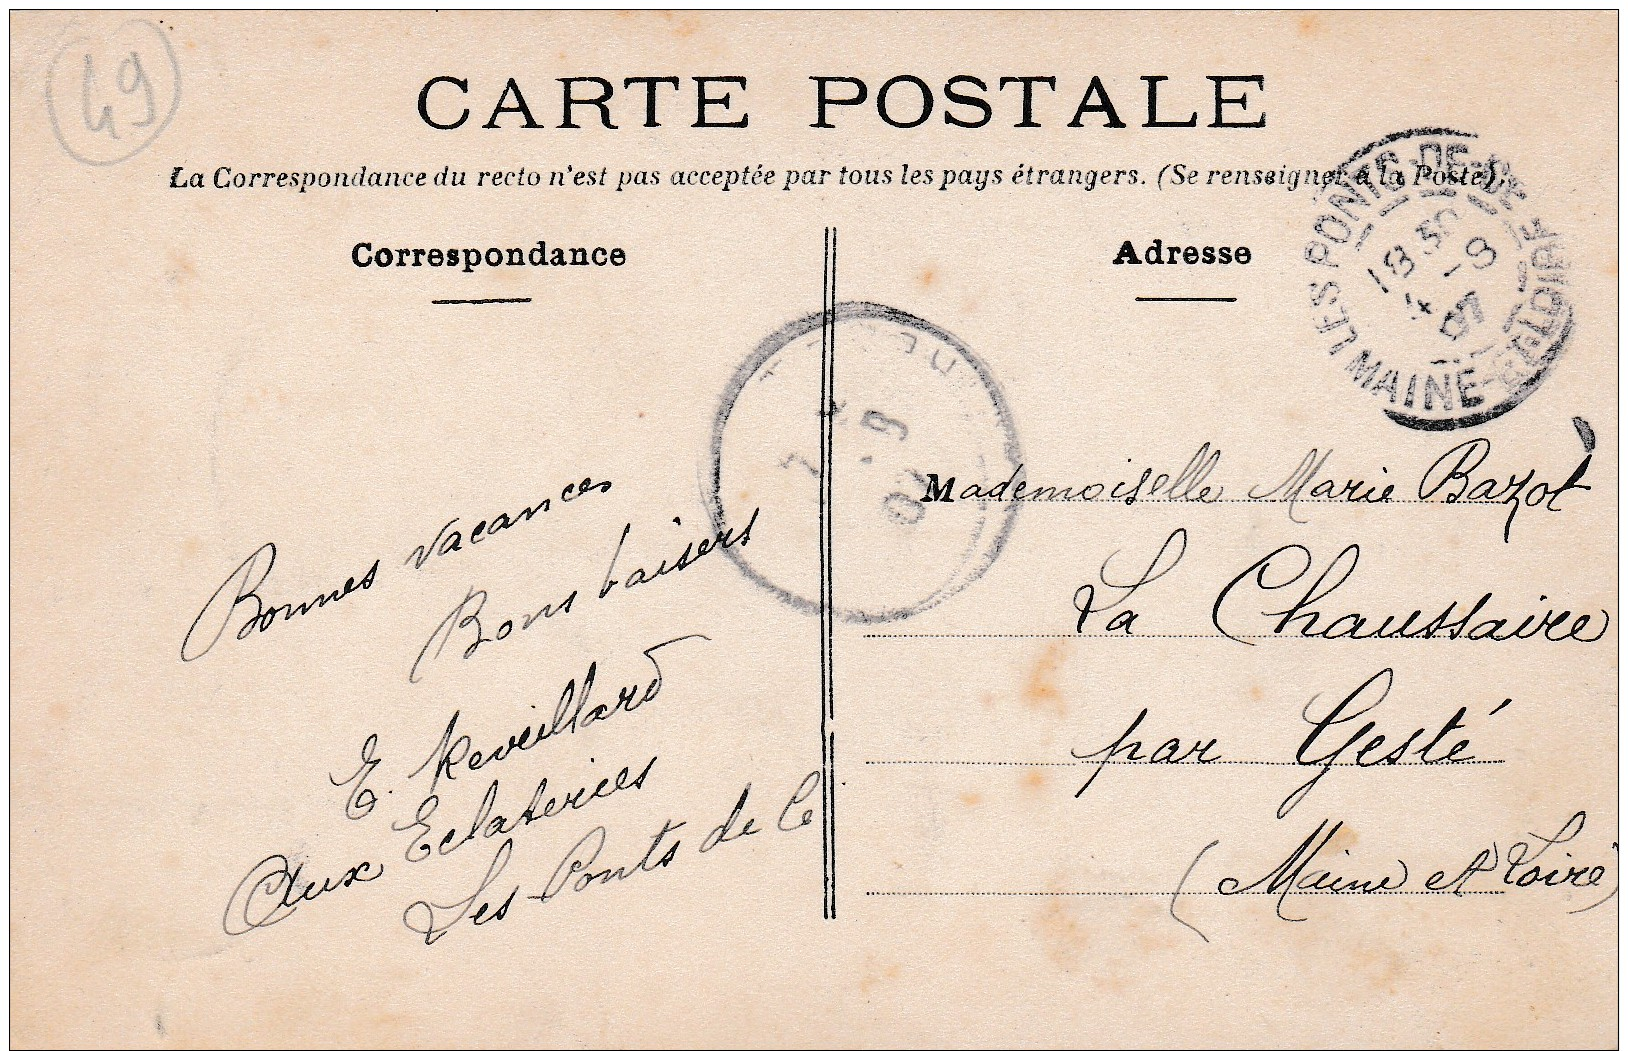 49
CARTE POSTALE
La Correspondance du recto n'est pas acceptée par tous les pays étrangers. (Se renseigner à la Poste).
Correspondance
Adresse
LES PONTS-DE-CÉ
MAINE-ET-LOIRE
18 30
4 -9
07
-9
07
Bonnes vacances
Bons baisers
E. Reveillard
Aux Eclateries
Les Ponts de Cé
Mademoiselle Marie Bazot
La Chaussaire
par Gesté
(Maine et Loire)